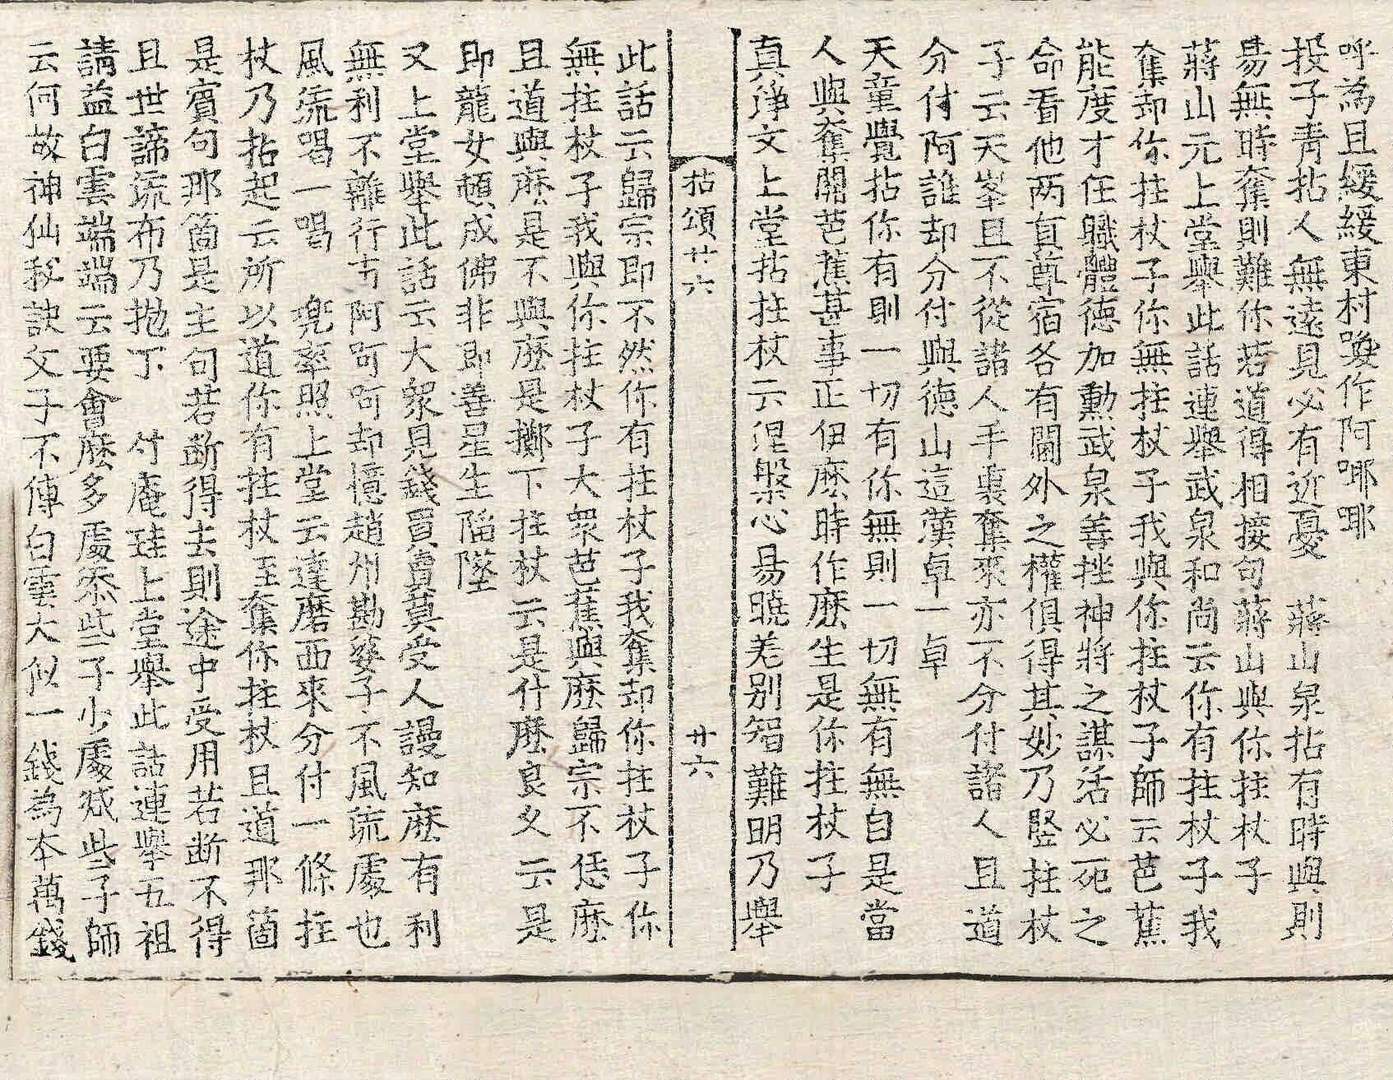 呼為且緩緩東村喚作阿㖿㖿
投子青拈人無遠見必有近憂　蔣山泉拈有時與則
易無時奪則難你若道得相接句蔣山與你拄杖子
蔣山元上堂舉此話連舉武泉和尚云你有拄杖子我
奪却你拄杖子你無拄杖子我與你拄杖子師云芭蕉
能度才任職體德加勳武泉善挫神將之謀活必死之
命看他两負尊宿各有閫外之權俱得其妙乃竪拄杖
子云天峯且不從諸人手裏奪來亦不分付諸人且道
分付阿誰却分付與德山這漢卓一卓
天童覺拈你有則一切有你無則一切無有無自是當
人與奪關芭蕉甚事正伊麽時作麽生是你拄杖子
真淨文上堂拈拄杖云涅槃心易曉差別智難明乃舉
拈頌廿六　廿六
此話云歸宗即不然你有拄杖子我奪却你拄杖子你
無拄杖子我與你拄杖子大衆芭蕉與麽歸宗不恁麽
且道與麽是不與麽是擲下拄杖云是什麽良久云是
即龍女頓成佛非即善星生陷墜
又上堂舉此話云大衆見錢買賣莫受人謾知麽有利
無利不離行市阿呵呵却憶趙州勘婆子不風流處也
風流唱一唱　兜率照上堂云達磨西來分付一條拄
杖乃拈起云所以道你有拄杖至奪你拄杖且道那箇
是賓句那箇是主句若断得去則途中受用若断不得
且世諦流布乃抛下　竹庵珪上堂舉此話連舉五祖
請益白雲端端云要會麽多處添些子少處減些子師
云何故神仙秘訣父子不傳白雲大似一錢為本萬錢